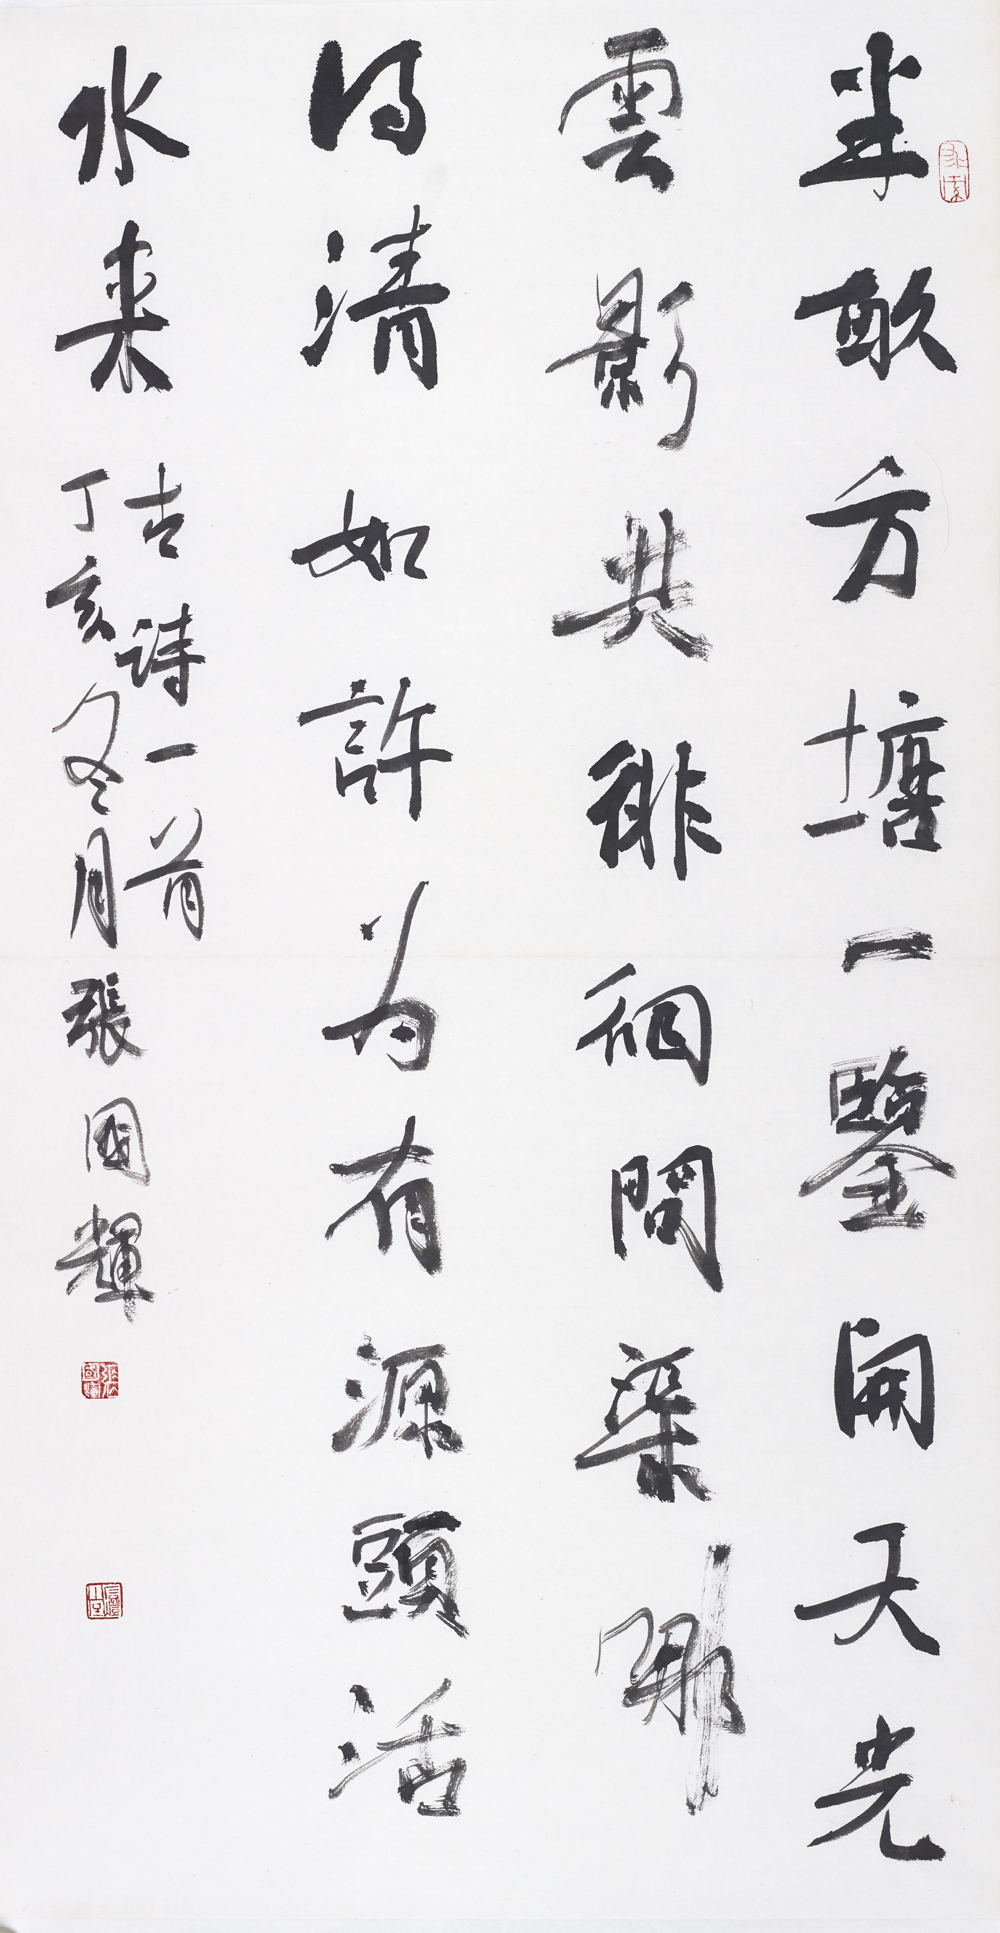 半畝方塘一鑒開天光
雲影共徘徊問渠哪
得清如許为有源頭活
水来
古诗一首
丁亥冬月張國輝
張國輝